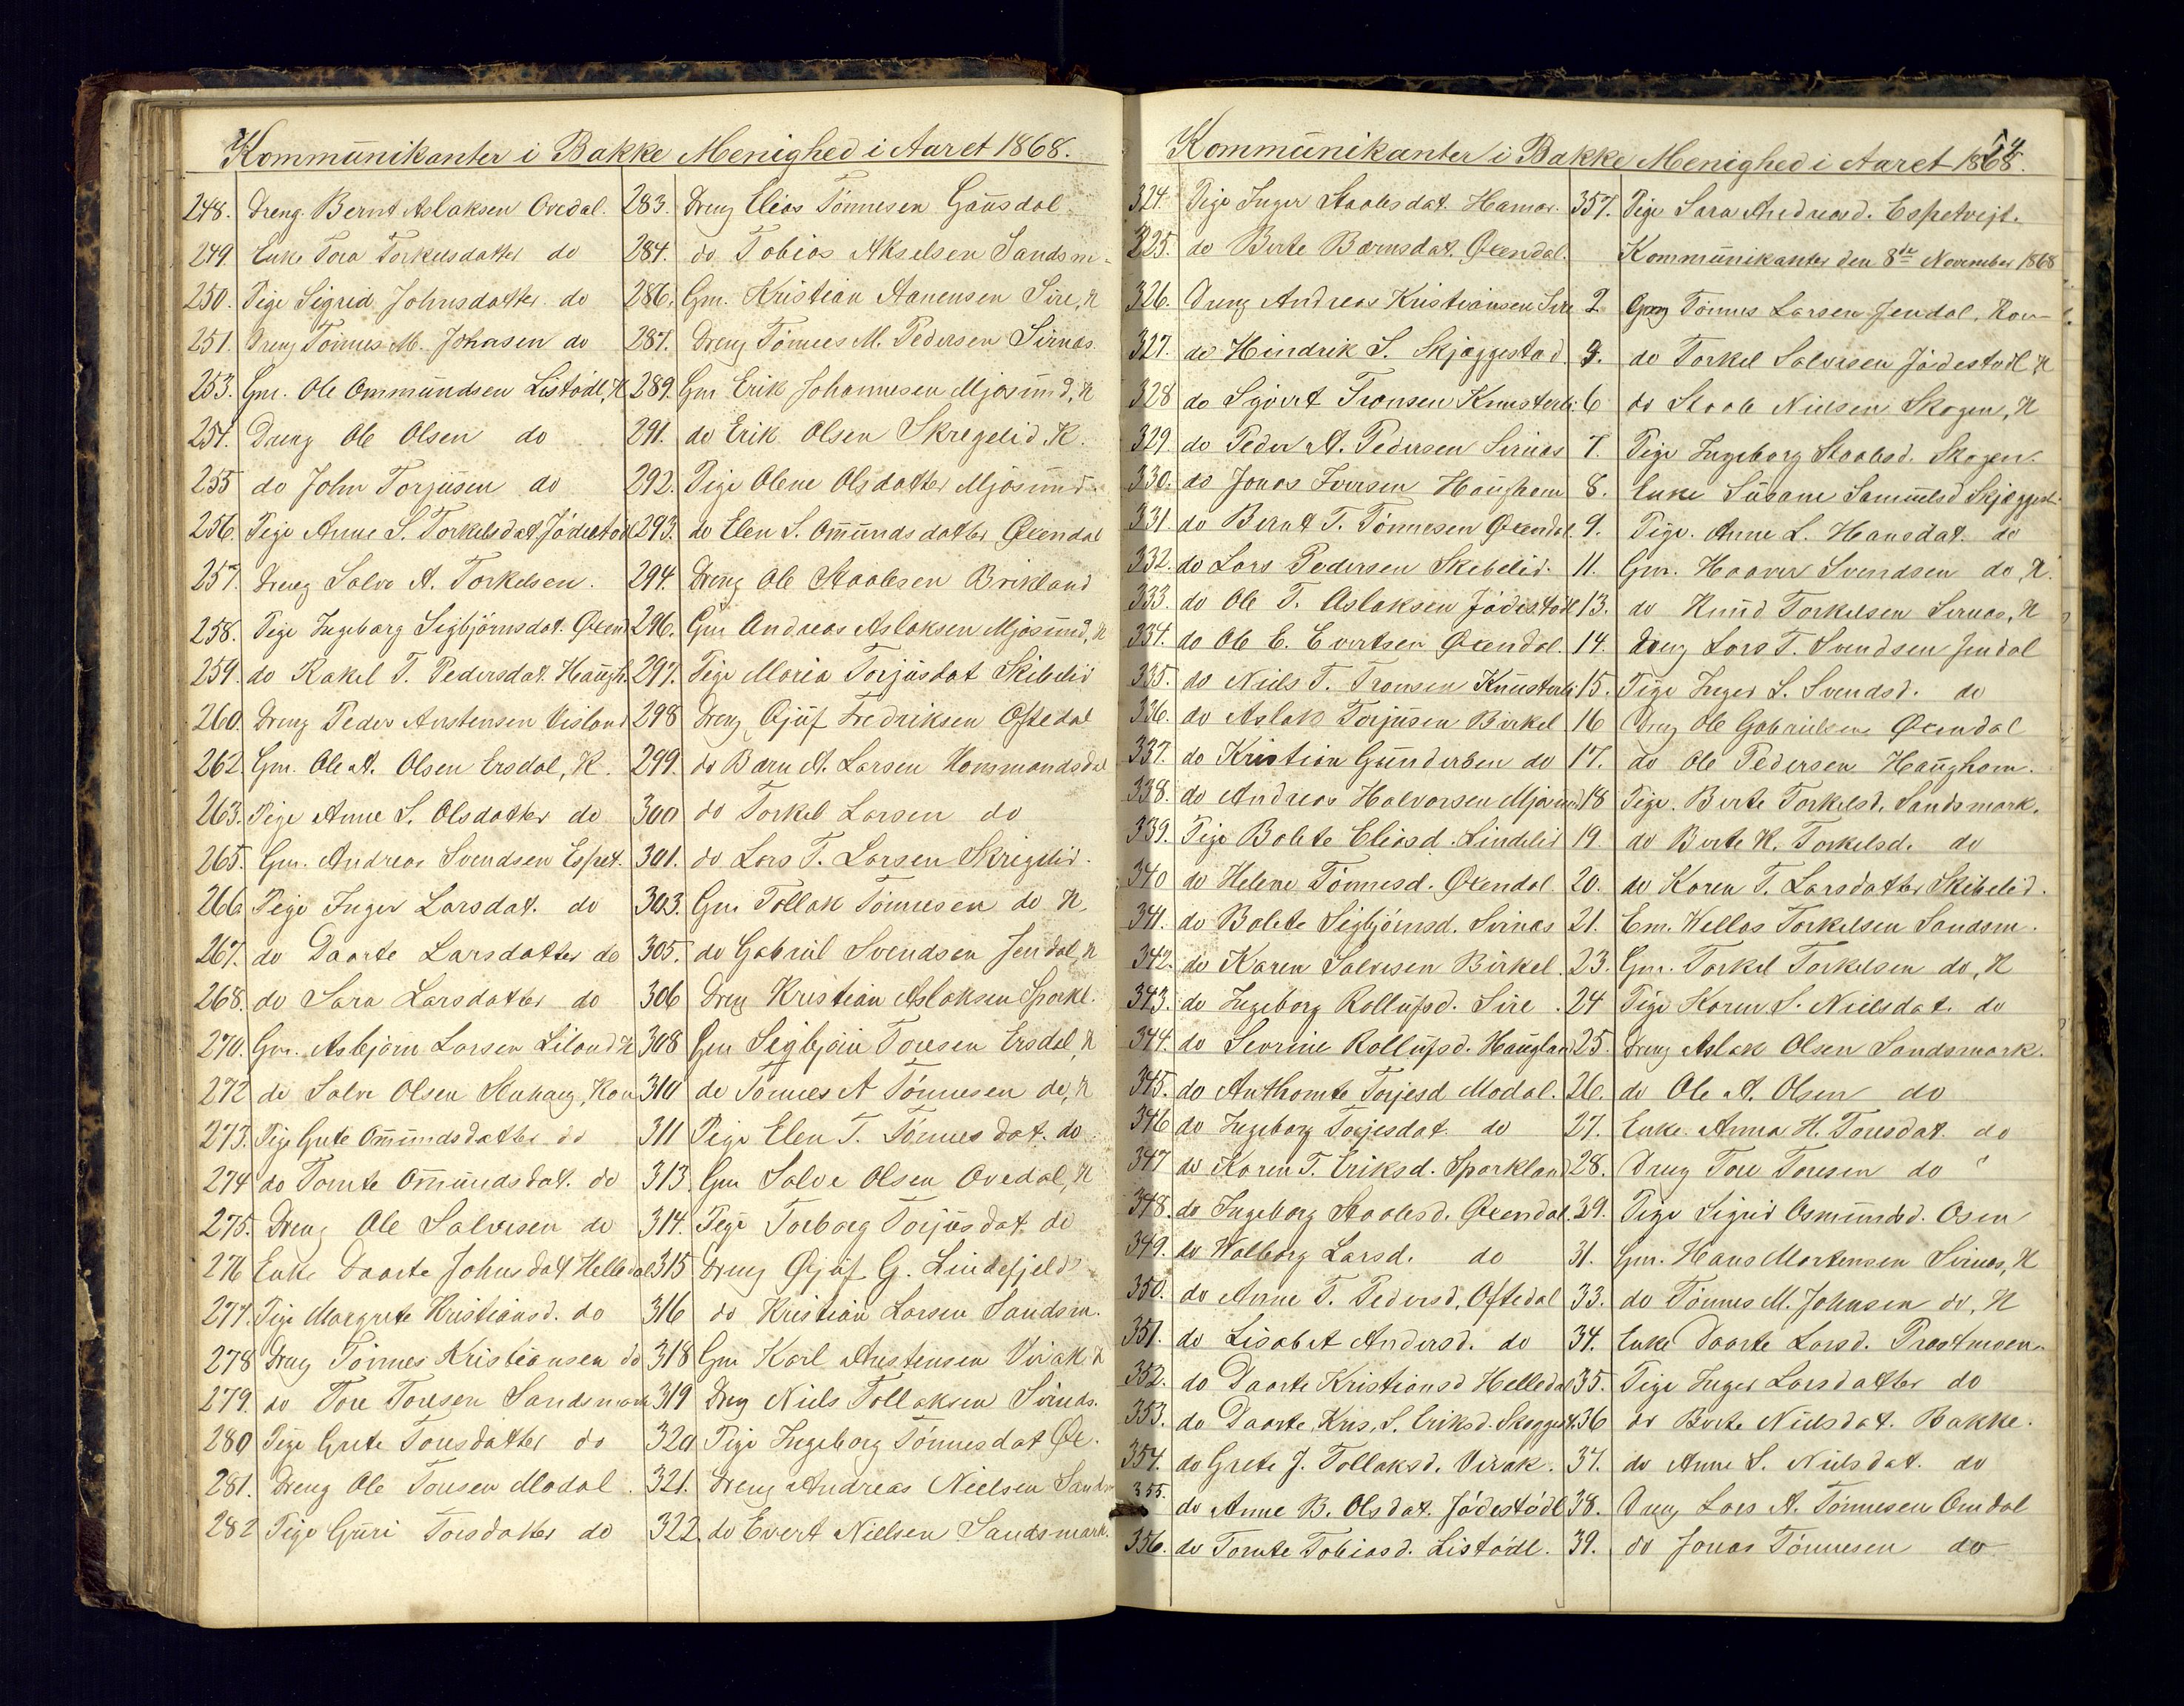 Kommūnikanter i Bakke Menighed i Aaret 1868.
248. Dreng Bernt Aslaksen Ovedal.
249. Enke Tora Torkelsdatter do
250. Pige Sigrid Johnsdatter do
251. Dreng Tönnes M. Johnsen do
253. Gm. Ole Ommūndsen Listödl, K
254. Dreng Ole Olsen do
255 do John Torjūsen do
256. Pige Anne S. Torkelsdat Jödestödl
257. Dreng Salve A. Torkelsen.
258. Pige Ingeborg Sigbjörnsdat. Øxend
259. do Rakel T. Pedersdat. Haūgh.
260. Dreng Peder Austensen Visland
262. Gm. Ole A. Olsen Ersdal, K.
263. Pige Anne S. Olsdatter do
265. Gm. Andreas Svendsen Espet.
266 Pige Inger Larsdat. do
267. do Daarte Larsdatter do
268. do Sara Larsdatter do
270. Gm. Asbjörn Larsen Liland K
272 do Salve Olsen Stuhaug, Kon
273. Pige Grete Om̄ūndsdatter do
274 do Tomte Om̄ūndsdat. do
275. Dreng Ole Salvesen do
276 Enke Daarte Johnsdat Helledal
277. Pige Margrete Kristiansd. do
278 Dreng Tönnes Kristiansen do
279. do Tore Toresen Sandsmark
280 Pige Grete Toresdatter do
281. Dreng Ole Toresen Modal.
282 Pige Gūri Toresdatter do
283. Dreng Elias Tönnesen Gaūsdal
284. do Tobias Akselsen Sandsm.
286. Gm. Kristian Aanensen Sire, K
287. Dreng Tönnes M. Pedersen Sirnas
289. Gm Erik Johannesen Mjösūnd, K
291. do Erik Olsen Skregelid K.
292. Pige Olene Olsdatter Mjösūnd.
293. do Elen S. Om̄ūndsdatter Øxendal
294. Dreng Ole Staalesen Birkland
296. Gm Andreas Aslaksen Mjösūnd, K
297. Pige Maria Torjūsdat Skibelid
298 Dreng Gjūf Fredriksen Oftedal
299. do Bærn A. Larsen Honsmandsdal
300 do Torkel Larsen do
301. do Lars T. Larsen Skrigelid.
303. Gm Tollak Tönnesen do K
305. do Gabriel Svendsen Jendal, K
306 Dreng Kristian Aslaksen Sparkl.
308 Gm Sigbjörn Toresen Ersdal, K
310 do Tönnes A Tönnesen do, K
311 Pige Elen T. Tönnesdat. do
313. Gm Salve Olsen Ovedal, K
314. Pige Torborg Torjūsdat. do
315 Dreng Gjūf G. Lindefjeld
316 do Kristian Larsen Sandsm.
318 Gm Karl Austensen Virak K
319 Dreng Niels Tollaksen Sirnas.
320 Pige Ingeborg Tönnesdat Øx.
321. Dreng Andreas Nielsen Sandsm
322. do Evert Nielsen Sandsmark.
54
Kommūnikanter i Bakke Menighed i Aaret 1868.
324. Pige Inger Staalesdat. Hamar.
325. do Berte Bærnsdat. Øxendal.
326. Dreng Andreas Kristiansen Sire
327. do Hindrik S. Skjæggestad
328 do Sigvert Tronsen Knusterli
329. do Peder A. Pedersen Sirnas
330. do Jonas Iversen Haūghom
331. do Bernt T. Tönnesen Øxendal.
332. do Lars Pedersen Skibelid.
333. do Ole T. Aslaksen Jödestödl
334. do Ole E. Evertsen Øxendal.
335. do Niels T. Tronsen Knūsterli
336. do Aslak Torjūsen Birkel
337. do Kristian Gūndersen do
338. do Andreas Halvorsen Mjösund
339. Pige Bolete Eliasd. Lindelid
340 do Helene Tönnesd. Øxendal
341. do Bolete Sigbjörnsd. Sirnas
342. do Karen Salvesen Birkel.
343. do Ingeborg Rollūfsd. Sire.
344. do Serine Rollūfsd. Haūgland
345. do Anthomte Torjesd Modal.
346 do Ingeborg Torjesdat do
347 do Karen T. Eriksd. Sparkland
348. do Ingeborg Staalesd. Øxendal.
349. do Walborg Larsd. do
350. do Anne T. Pedersd. Oftedal
351. do Lisabet Andersd. do
352. do Daarte Kristiansd Helledal
353. do Daarte Kris. S. Eriksd. Skeggest.
354. do Grete J. Tollaksd. Virak.
355. do Anne B. Olsdat. Jödestödl
356. do Tomte Tobiasd. Listödl.
357. Pige Sara Andreasd. Espetveit.
Kommūnikanter den 8de November 1868
2. Gm Tönnes Larsen Jendal, Kon
4. do Torkel Salvesen Jödestödl K
6 do Staale Nielsen Skogen, K
7. Pige Ingeborg Staalesd. Skogen.
8. Enke Sūsane Samūelsd Skjæggest.
9. Pige. Anne L. Hansdat. do
11. Gm. Haaver Svendsen do, K.
13. do Knūd Torkelsen Sirnas, K
14. Dreng Lars T. Svendsen Jendal
15. Pige Inger S. Svendsd. do
16 Dreng Ole Gabrielsen Øxendal
17. do Ole Pedersen Haūghom.
18 Pige. Berte Torkelsd. Sandsmark.
19. do Berte K. Torkelsd. do
20. do Karen T. Larsdatter Skibelid.
21. Em. Wellas Torkelsen Sandsm.
23. Gm. Torkel Torkelsen do, K
24 Pige Karen S. Nielsdat. do
25. Dreng Aslak Olsen Sandsmark.
26. do Ole A. Olsen do
27. Enke Anna H. Toresdat. do
28. Dreng Tore Toresen do
29. Pige Sigrid Osmūndsd. Osen
31. Gm. Hans Mortensen Sirnas, K
33. do Tönnes M. Johnsen do, K
34. Enke Daarte Larsd. Prostmoen
35. Pige Inger Larsdatter do
36 do Berte Nielsdat. Bakke.
37. do Anne S. Nielsdat. do
38. Dreng Lars A. Tönnesen Omdal
39. do Jonas Tönnesen do